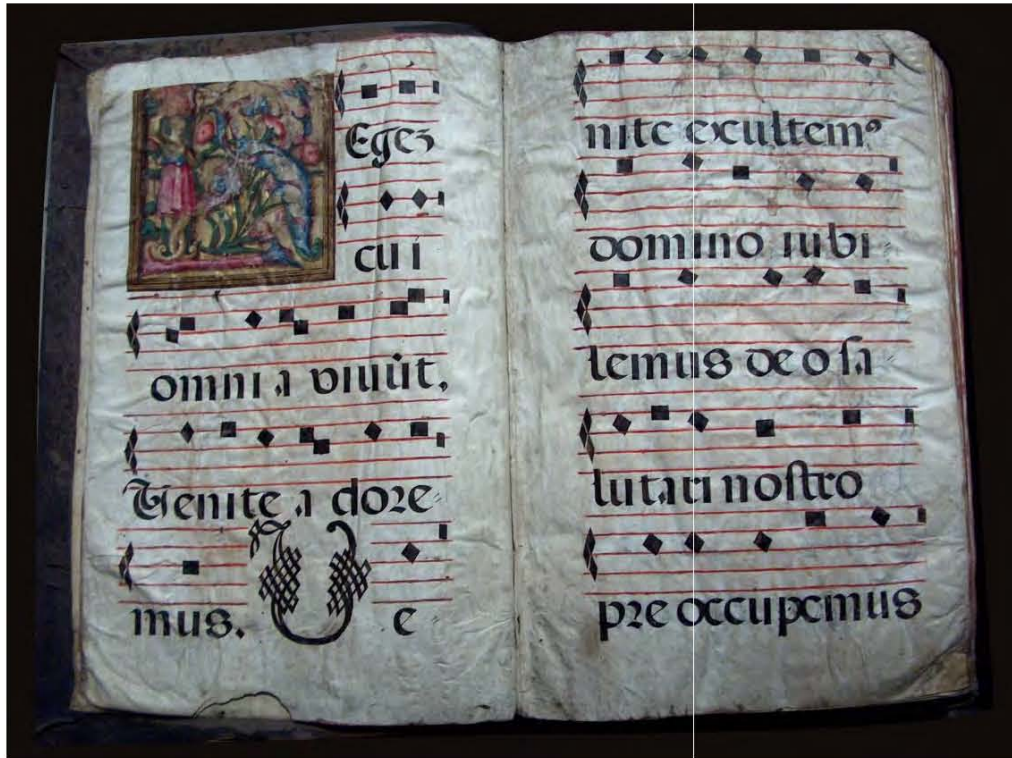 Regez
cui
omnia viuūt.
Venite adore
mus. Ve
nite exultemꝰ
domino iubi
lemus deo sa
lutari nostro
preoccupemus